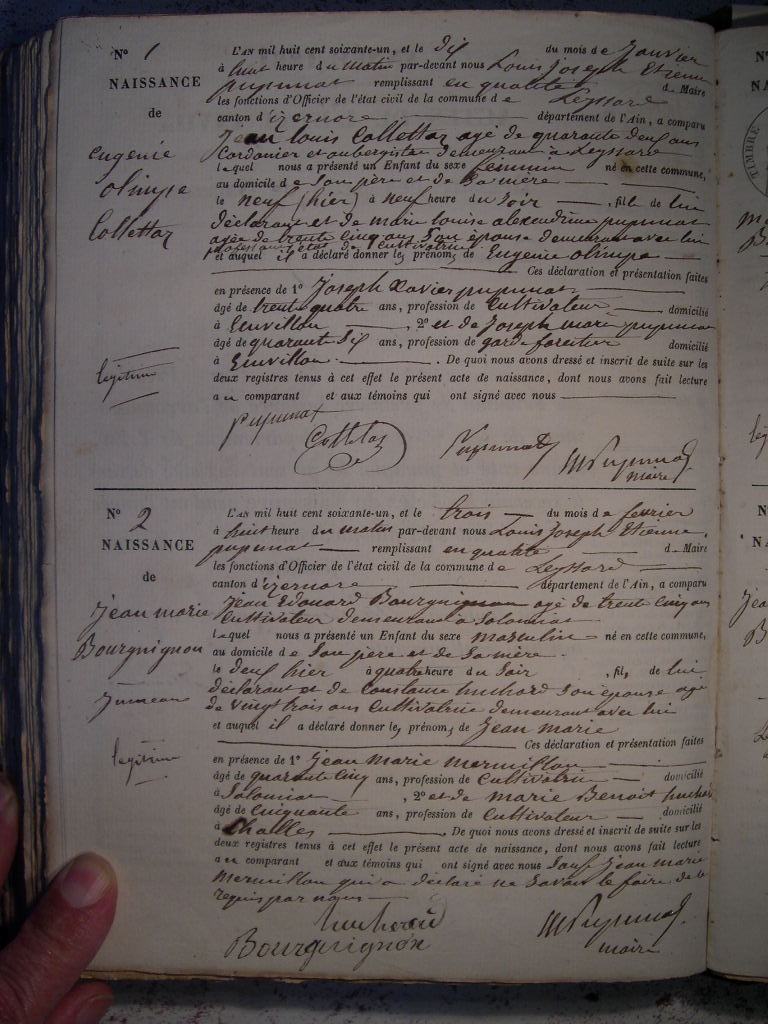 N° 1
NAISSANCE
de
eugenie
olimpe
Collettaz
legitime
L'AN mil huit cent soixante-un, et le dix du mois de Janvier
à huit heure du matin par-devant nous Louis Joseph Etienne
pupunat remplissant en qualité de Maire
les fonctions d'Officier de l'état civil de la commune de Leyssard
canton d'izernore département de l'Ain, a comparu
Jean Louis Collettaz agé de quarante deux ans
Cordonier et aubergiste demeurant à Leyssard
lequel nous a présenté un Enfant du sexe feminin né en cette commune,
au domicile de Son père et de Sa mère
le neuf (hier) à neuf heure du Soir, fille de lui
déclarant et de marie louise alexandrine pupunat
agée de trente cinq ans Son épouse demeurant avec lui
profession de Cultivatrice
et auquel il a déclaré donner les prénoms de Eugenie olimpe
Ces déclaration et présentation faites
en présence de 1° Joseph Xavier pupunat
âgé de trente quatre ans, profession de Cultivateur domicilié
à Emvillon, 2° et de Joseph marie pupunat
âgé de quarante six ans, profession de garde forestier domicilié
à Emvillon. De quoi nous avons dressé et inscrit de suite sur les
deux registres tenus à cet effet le présent acte de naissance, dont nous avons fait lecture
au comparant et aux témoins qui ont signé avec nous
pupunat
Collettaz
Pupunat
M Pupunat
maire
N° 2
NAISSANCE
de
Jean marie
Bourguignon
Jumeau
legitime
L'AN mil huit cent soixante-un, et le trois du mois de fevrier
à huit heure du matin par-devant nous Louis Joseph Etienne
pupunat remplissant en qualité de Maire
les fonctions d'Officier de l'état civil de la commune de Leyssard
canton d'izernore département de l'Ain, a comparu
Jean Edouard Bourguignon agé de trente cinq ans
Cultivateur demeurant à Solomiat
lequel nous a présenté un Enfant du sexe masculin né en cette commune,
au domicile de Son père et de Sa mère.
le deux hier à quatre heure du Soir, fils de lui
déclarant et de Constance huchard Son épouse agé
de vingt trois ans Cultivatrice demeurant avec lui
et auquel il a déclaré donner les prénoms de Jean marie
Ces déclaration et présentation faites
en présence de 1° Jean Marie mermillon
âgé de quarante cinq ans, profession de Cultivateur domicilié
à Solomiat, 2° et de marie Benoit huchard
âgé de Cinquante ans, profession de Cultivateur domicilié
à Challes. De quoi nous avons dressé et inscrit de suite sur les
deux registres tenus à cet effet le présent acte de naissance, dont nous avons fait lecture
au comparant et aux témoins qui ont signé avec nous Sauf Jean marie
mermillon qui a déclaré ne Savoir le faire de ce
requis par nous
huchard
Bourguignon
M Pupunat
maire
TIMBRE